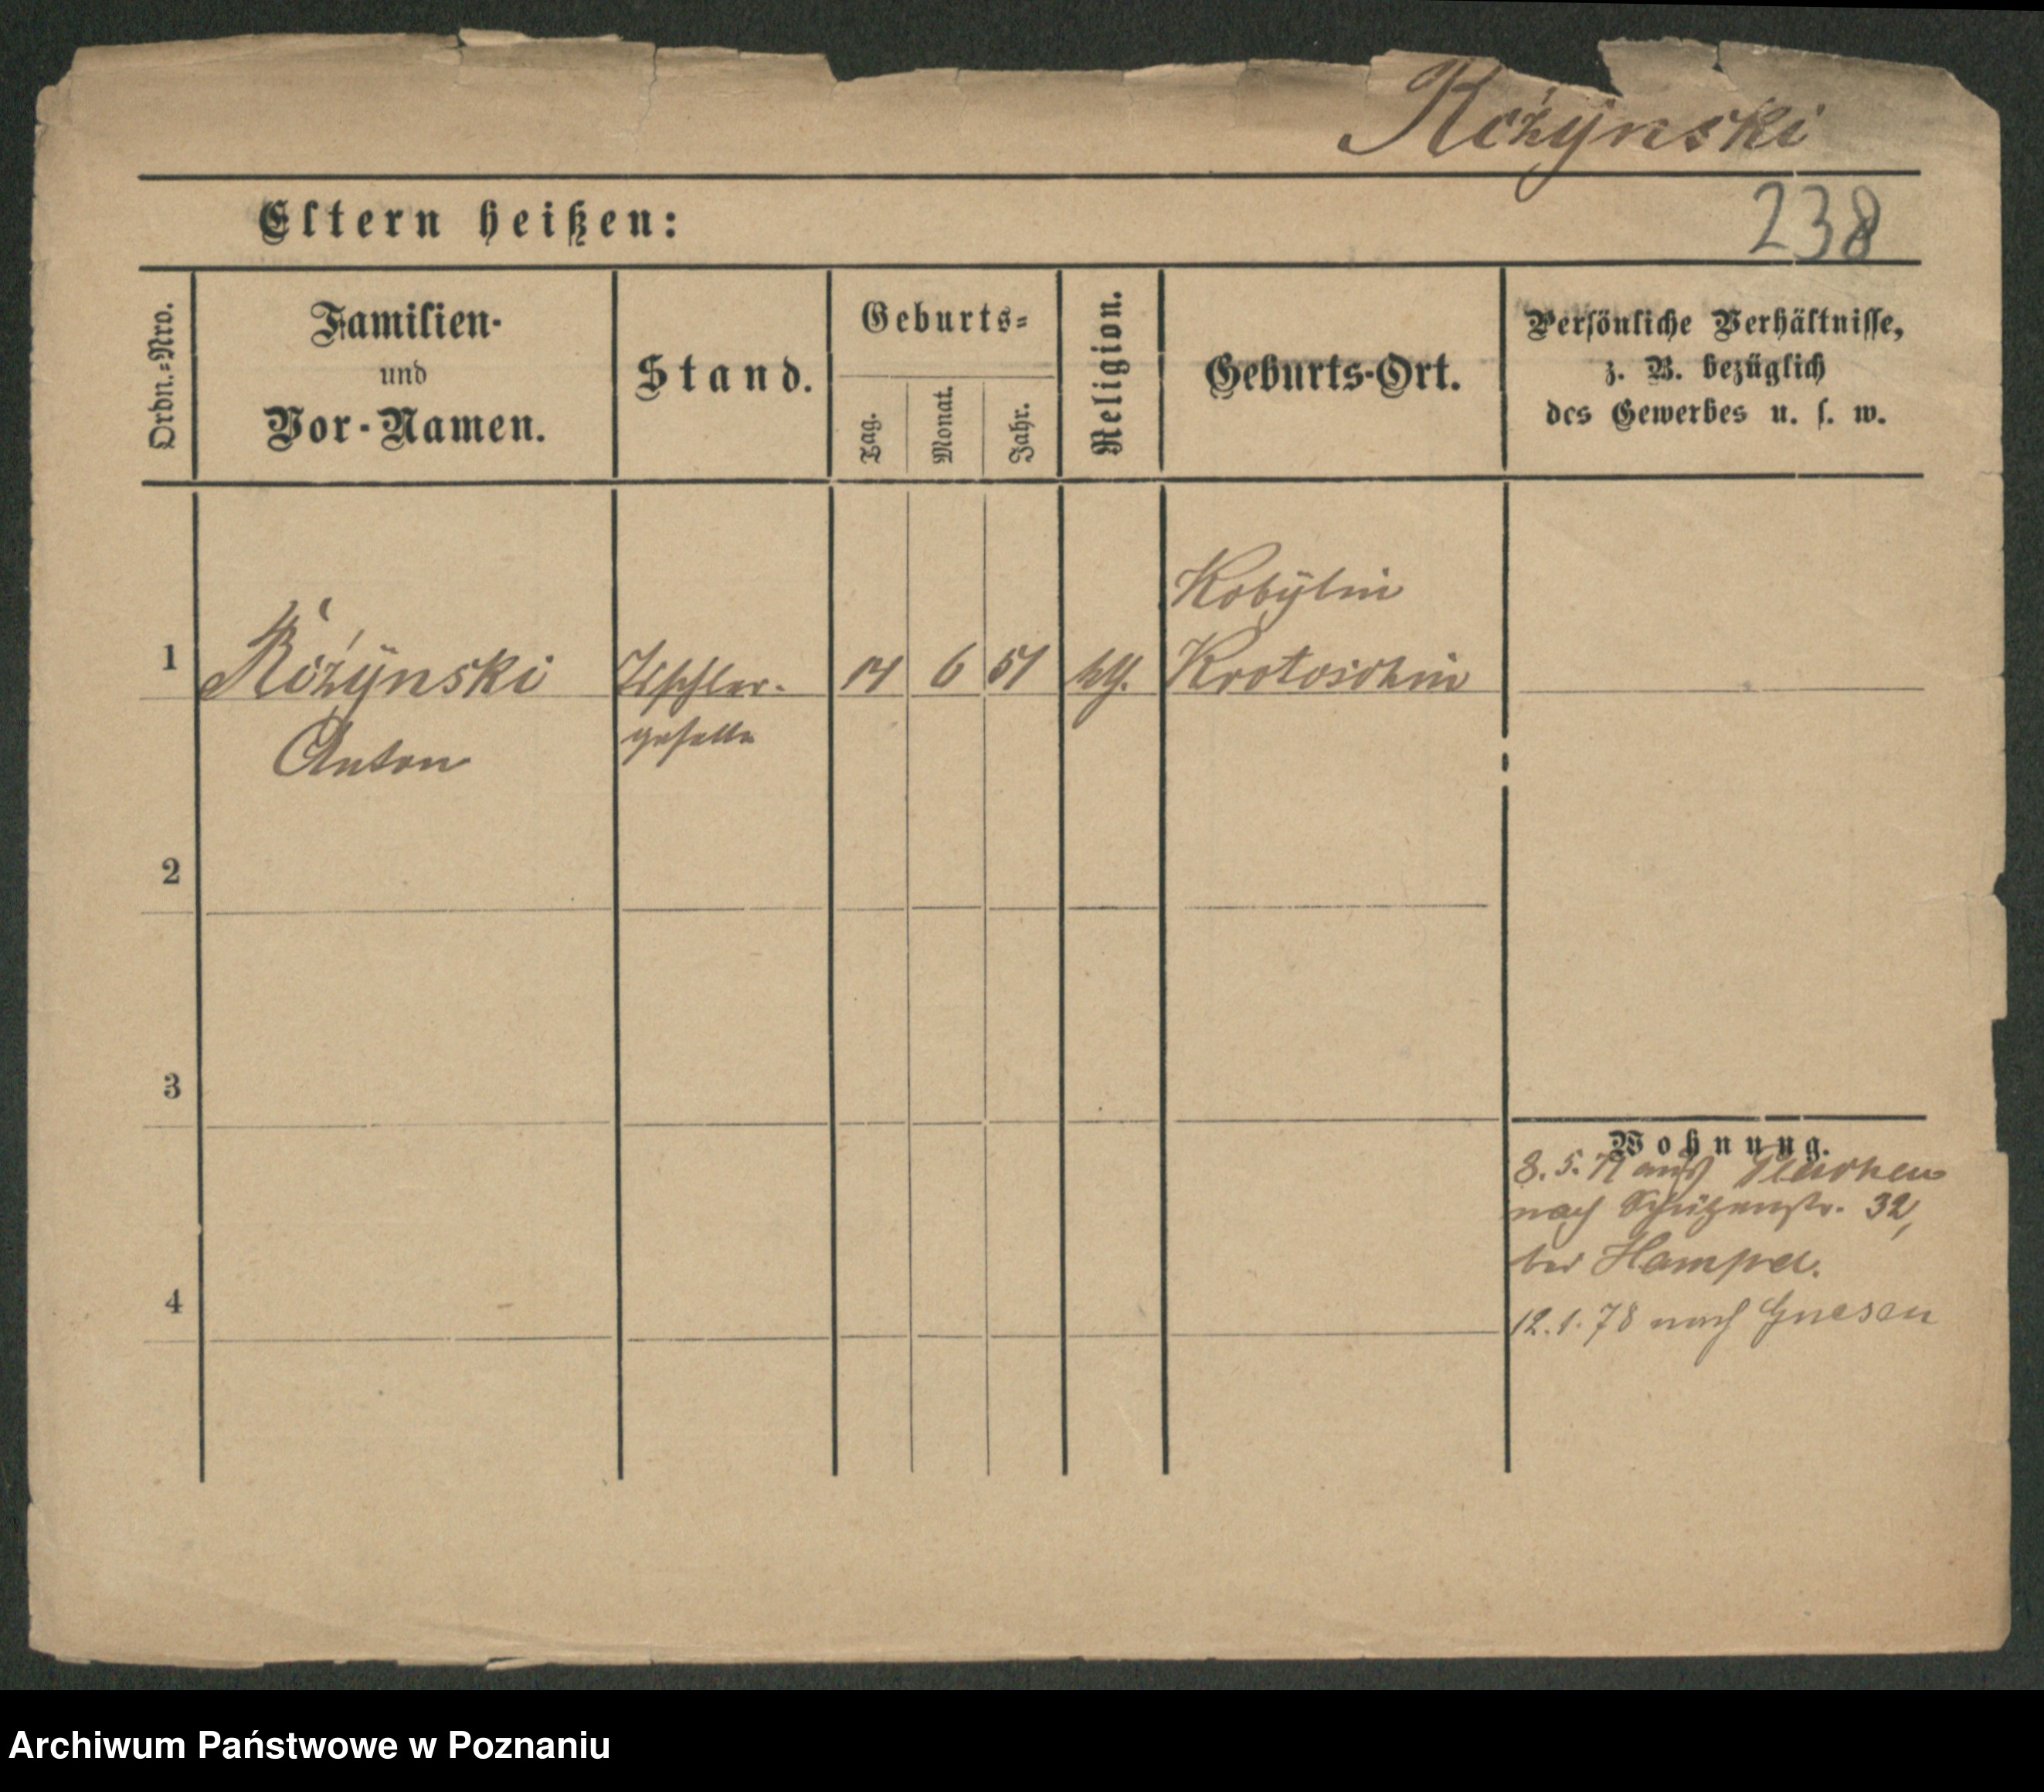 Różynski
Eltern heißen:
238
Ordn.-Nro.
Familien-
und
Vor-Namen.
Stand.
Geburts-
Tag.
Monat.
Jahr.
Religion.
Geburts-Ort.
Persönliche Verhältnisse,
z. B. bezüglich
des Gewerbes u. s. w.
1
Różynski
Anton
Tischler-
geselle
6
kth.
Kobylin
Krotoschin
2
3
4
Wohnung.
8. 5. aus
nach Schützenstr. 32,
bei Hampel.
12. 1. 78 nach Gnesen
Archiwum Państwowe w Poznaniu